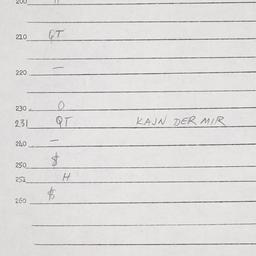 200
210 QT
220 —
230 O
231 QT KAJN DER MIR
240 —
250 $
252 H
260 $